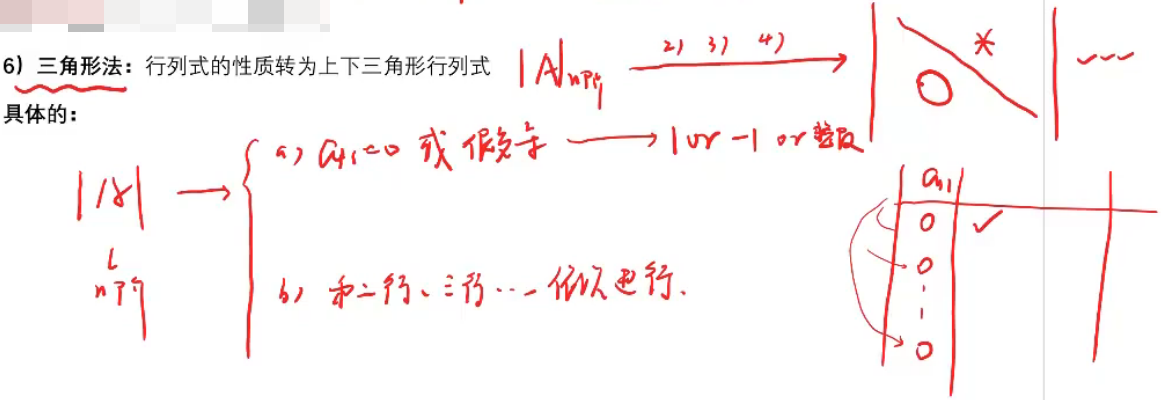 6）三角形法：行列式的性质转为上下三角形行列式
|A|n阶 2) 3) 4) * 0
具体的：
a) a11=0 或 → 1 or -1 or 整数
|A|
n阶
b) 第二行、三行… 依次进行.
a11
0
0
0